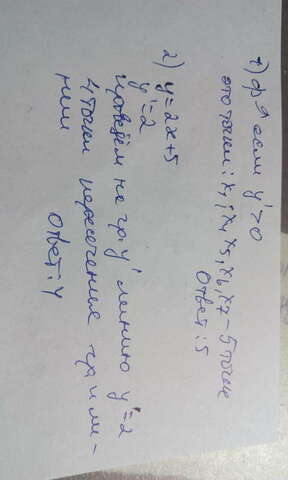 1) ф ↗ если y'>0
это точки: x₁; x₄, x₅, x₆, x₇ – 5 точек
Ответ: 5
2) y=2x+5
y'=2
проведём на гр. y' линию y'=2
4 точки пересечения гр и ли-
нии
Ответ: 4